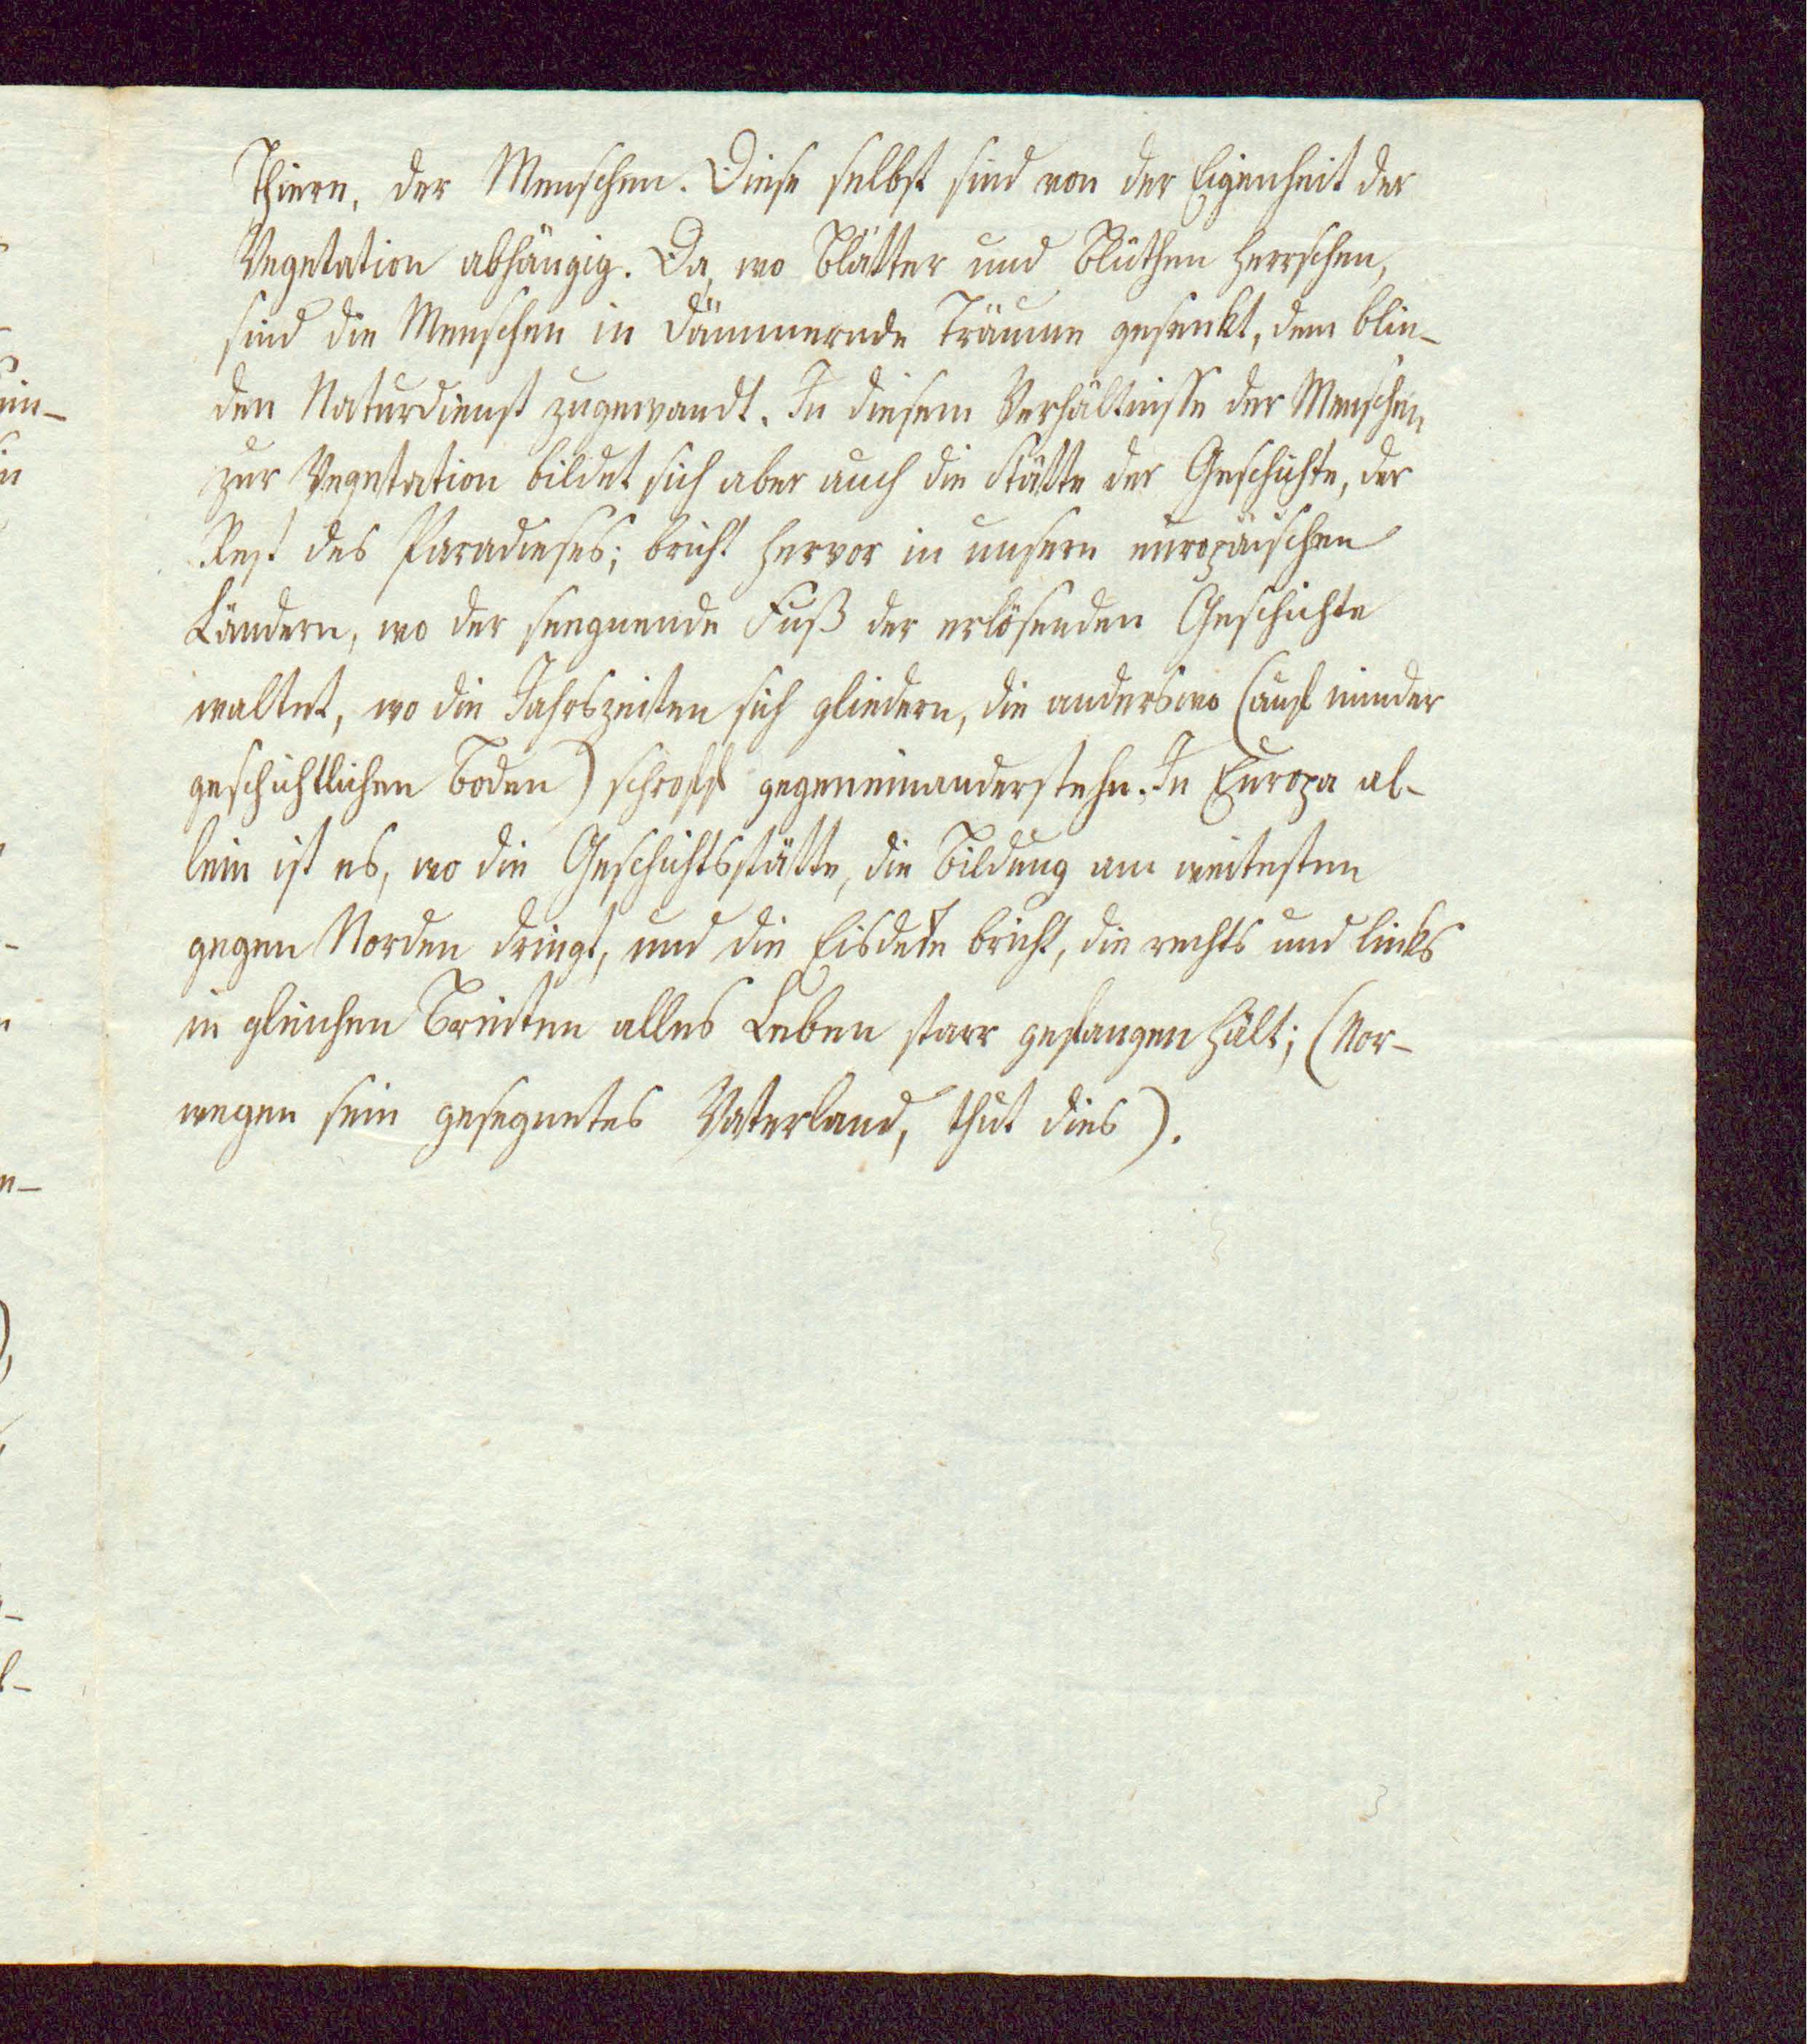 Thiere, der Menschen. Diese selbst sind von der Eigenheit der
Vegetation abhängig. Da, wo Blätter und Blüthen herrschen,
sind die Menschen in dämmernde Träume gesenkt, dem blin-
den Naturdienst zugewandt. In diesem Verhältnisse der Menschen
zur Vegetation bildet sich aber auch die Stätte der Geschichte, der
Rest des Paradieses; bricht hervor in unsern europäischen
Ländern, wo der seegnende Fuß der erlösenden Geschichte
waltet, wo die Jahrszeiten sich gliedern, die anderswo (auf minder
geschichtlichen Boden) schroff gegeneinanderstehn. In Europa al-
lein ist es, wo die Geschichtsstätte, die Bildung am weitesten
gegen Norden dringt, und die Eisdecke bricht, die rechts und links
in gleichen Breiten alles Leben starr gefangen hält; (Nor-
wegen sein gesegnetes Vaterland, thut dies).